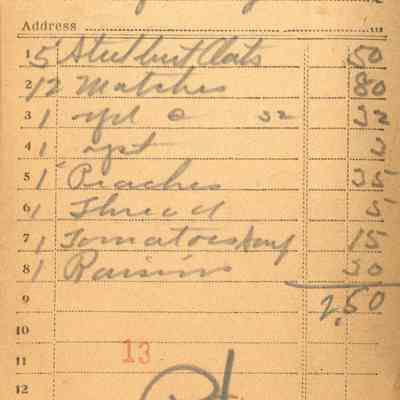 Address
1 5 Steel cut Oats 50
2 12 Matches 80
3 1 32 32
4 1 3
5 1 Peaches 35
6 1 Thread 5
7 1 Tomatoes 15
8 1 Raisins 30
9 2,50
10
11 13
12 Pd